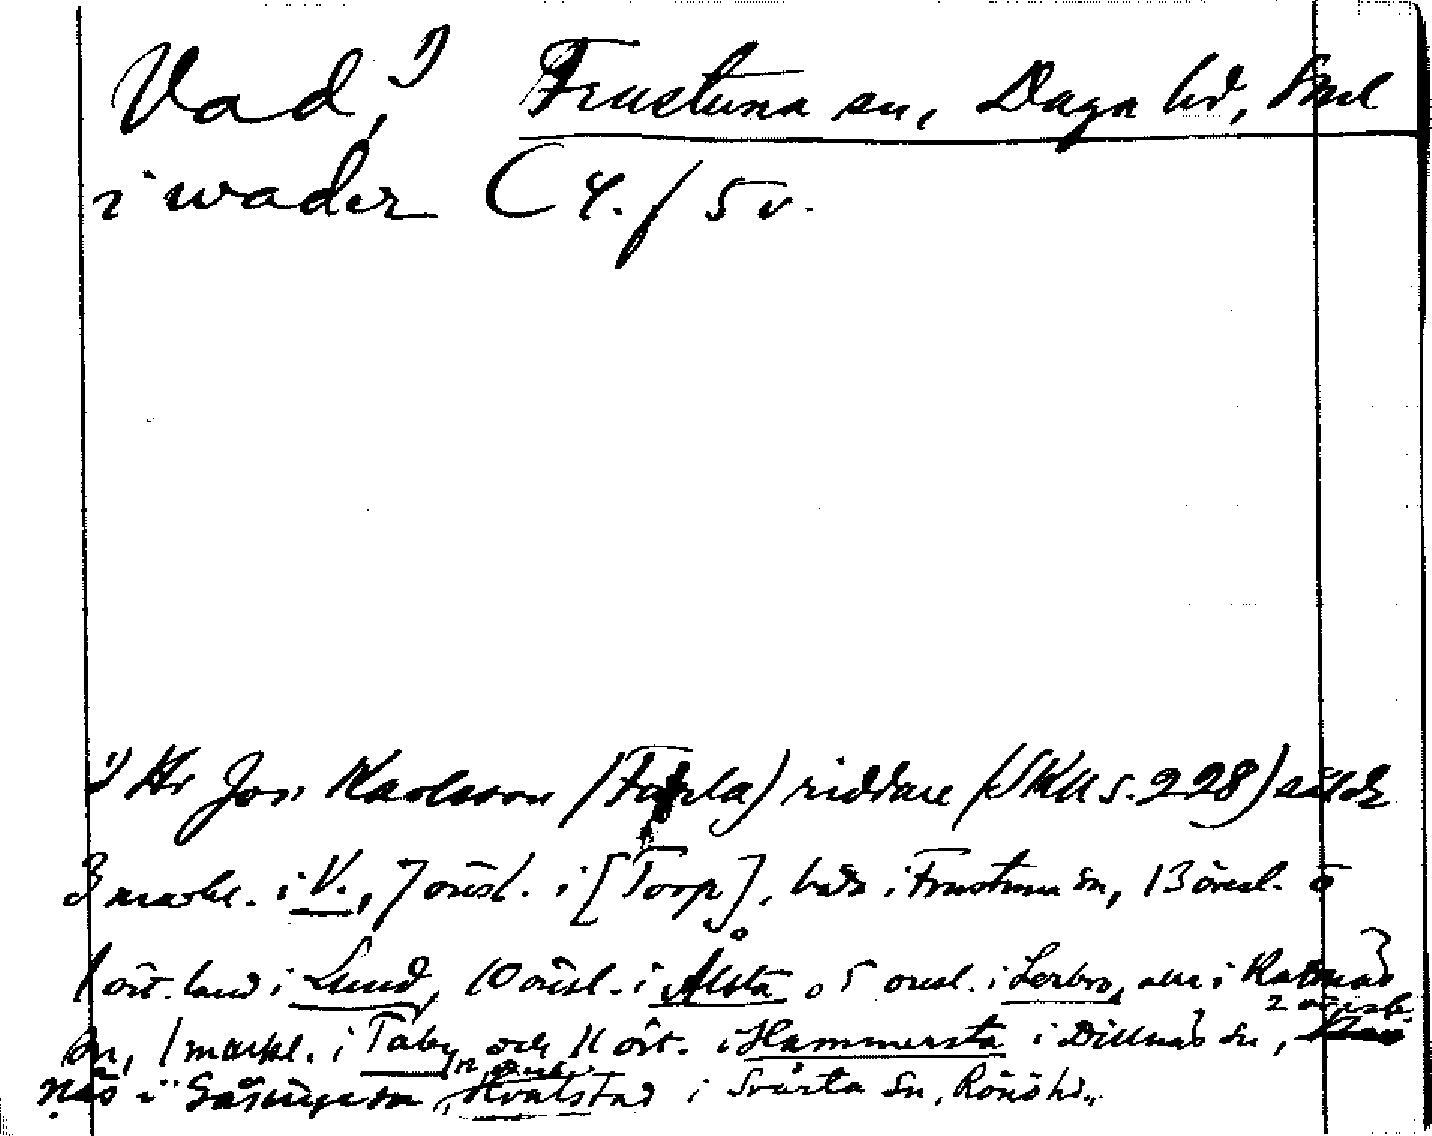 Vad,¹⁾ Frustuna sn, Daga hd, Sml
i wader C 4./5 v.
¹⁾ Hr Jon Karlsson (Farla) riddare (SKU s. 228) sålde
3 markl. i V., 7 öresl. i [Torp], båda i Frustuna sn, 13 öresl. o
1 ört. land i Lund, 10 öresl. i Ålsta o 5 öresl. i Lerbro, alla i Kattnäs
sn, 1 markl. i Täby och 11 ört. i Hammersta i Dillnäs sn, 2 öresl.
näs i Gåsinge sn, Hvalstad i Svärta sn, Rönö hd.